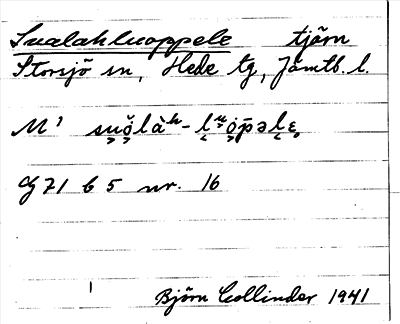 Sualahluoppele tjärn
Storsjö sn, Hede tg, Jämtl. l.
M¹ suŏ̬làʰ-lᵘo̬p̄əlɛ̥
G 71 b 5 nr. 16
Björn Collinder 1941